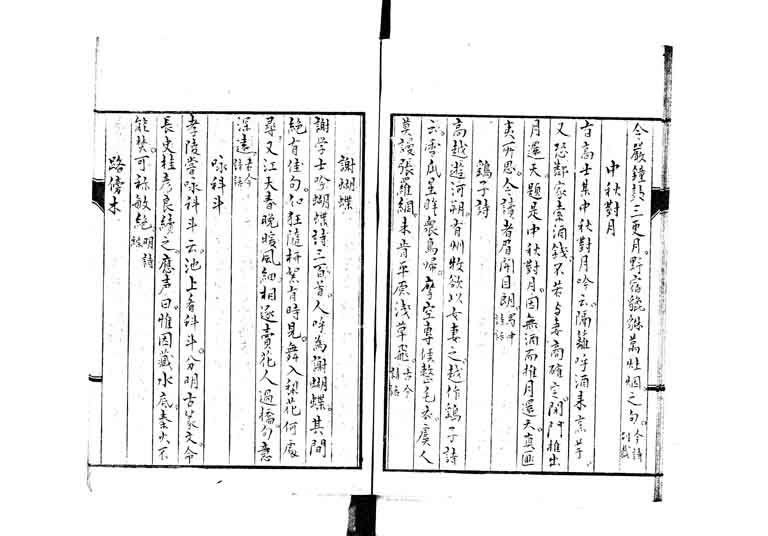 今嚴鐘鼓三更月。野宿貔貅萬灶烟之句。今詩
中秋對月
昔高士某中秋對月吟云。隔籬呼酒來
又恐鄰家索酒錢。不若與妻商確定。開門推出
月還天。題是中秋對月。因無酒而推月還天。真匪
夷所思。令讀者眉開目朗。
鷂子詩
高越遊河朔。有州牧欲以女妻之。越作鷂子詩
云。雪爪星眸衆鳥歸。摩空專候整毛衣。虞人
莫謾張羅網。未肯平原淺草飛。古今詩話
謝蝴蝶
謝學士吟蝴蝶詩三百首。人呼為謝蝴蝶。其間
絕有佳句。如狂隨柳絮有時見。舞入梨花何處
尋。又江天春晚暖風細。相逐賣花人過橋。句意
深遠。古今詩話
咏科斗
孝陵嘗咏科斗云。池上看科斗。分明古篆文。命
長史桂彥良續之。應声曰。惟因藏水底。秦火不
能焚。可称敏絕。明詩
路傍木